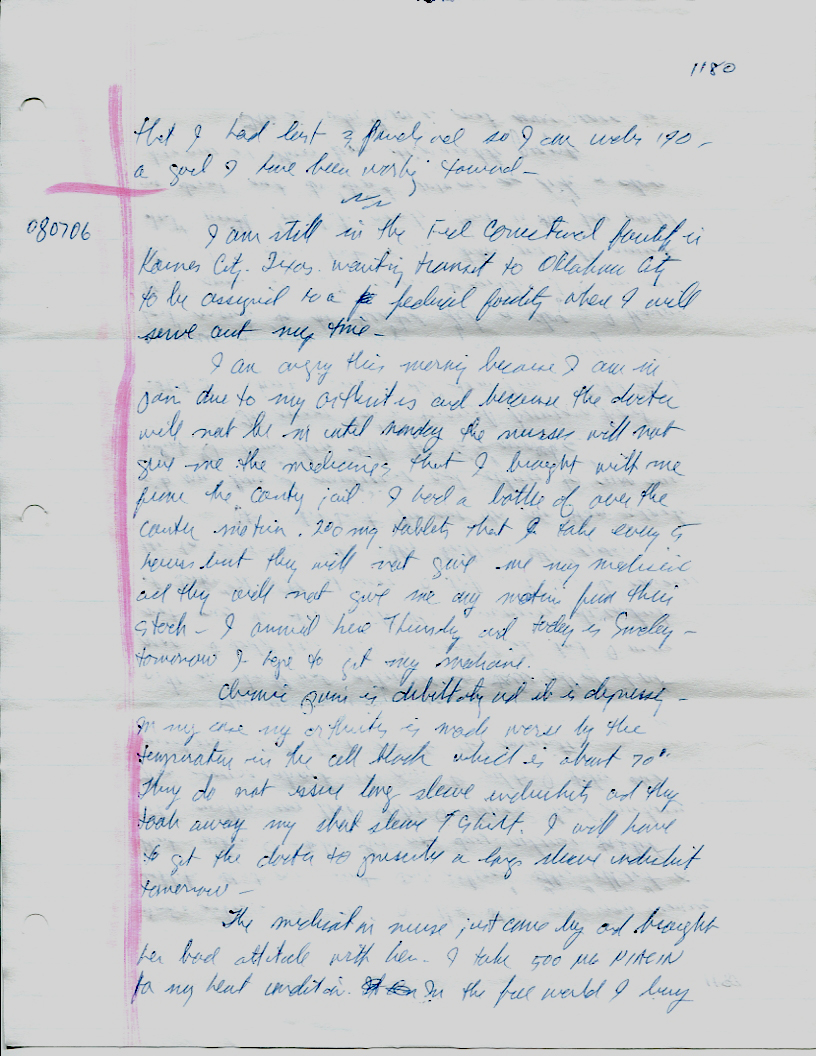 1180
that I had lost 3 pounds and so I am under 190 -
a goal I have been working toward -
080706
I am still in the Fed Correctional facility in
Karnes City. Texas. waiting transit to Oklahoma City
to be assigned to a federal facility where I will
serve out my time -
I am angry this morning because I am in
pain due to my arthritis and because the doctor
will not be in until monday the nurses will not
give me the medicines that I brought with me
from the county jail. I had a bottle of over the
counter motrin. 200 mg tablets that I take every 5
hours but they will not give me my medicine
and they will not give me any motrin from their
stock - I arrived here Thursday and today is Sunday -
tomorrow I hope to get my medicine.
Chronic pain is debilitating and it is depressing -
In my case my arthritis is made worse by the
temperature in the cell block which is about 70°
They do not issue long sleeve undershirts and they
took away my short sleeve T shirt. I will have
to get the doctor to prescribe a long sleeve undershirt
tomorrow -
The medication nurse just came by and brought
her bad attitude with her. I take 500 MG NIACIN
for my heart condition. In the free world I buy